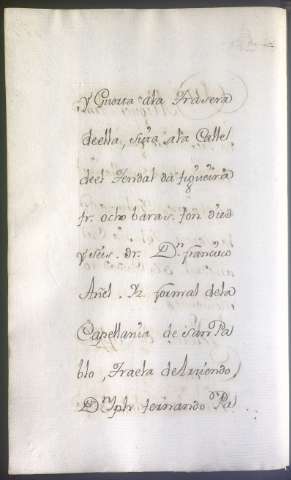 y Guerta â la Trasera
de ella, sitas â la Calle
de el Fondal dâ figueira
fr. ocho baras. fon. diez
y seis. Dr. Dn. francisco
Añel. Yz. formal de la
Capellania, de San Pa
blo, Traela de Arriendo
Dn. Jph. fernando